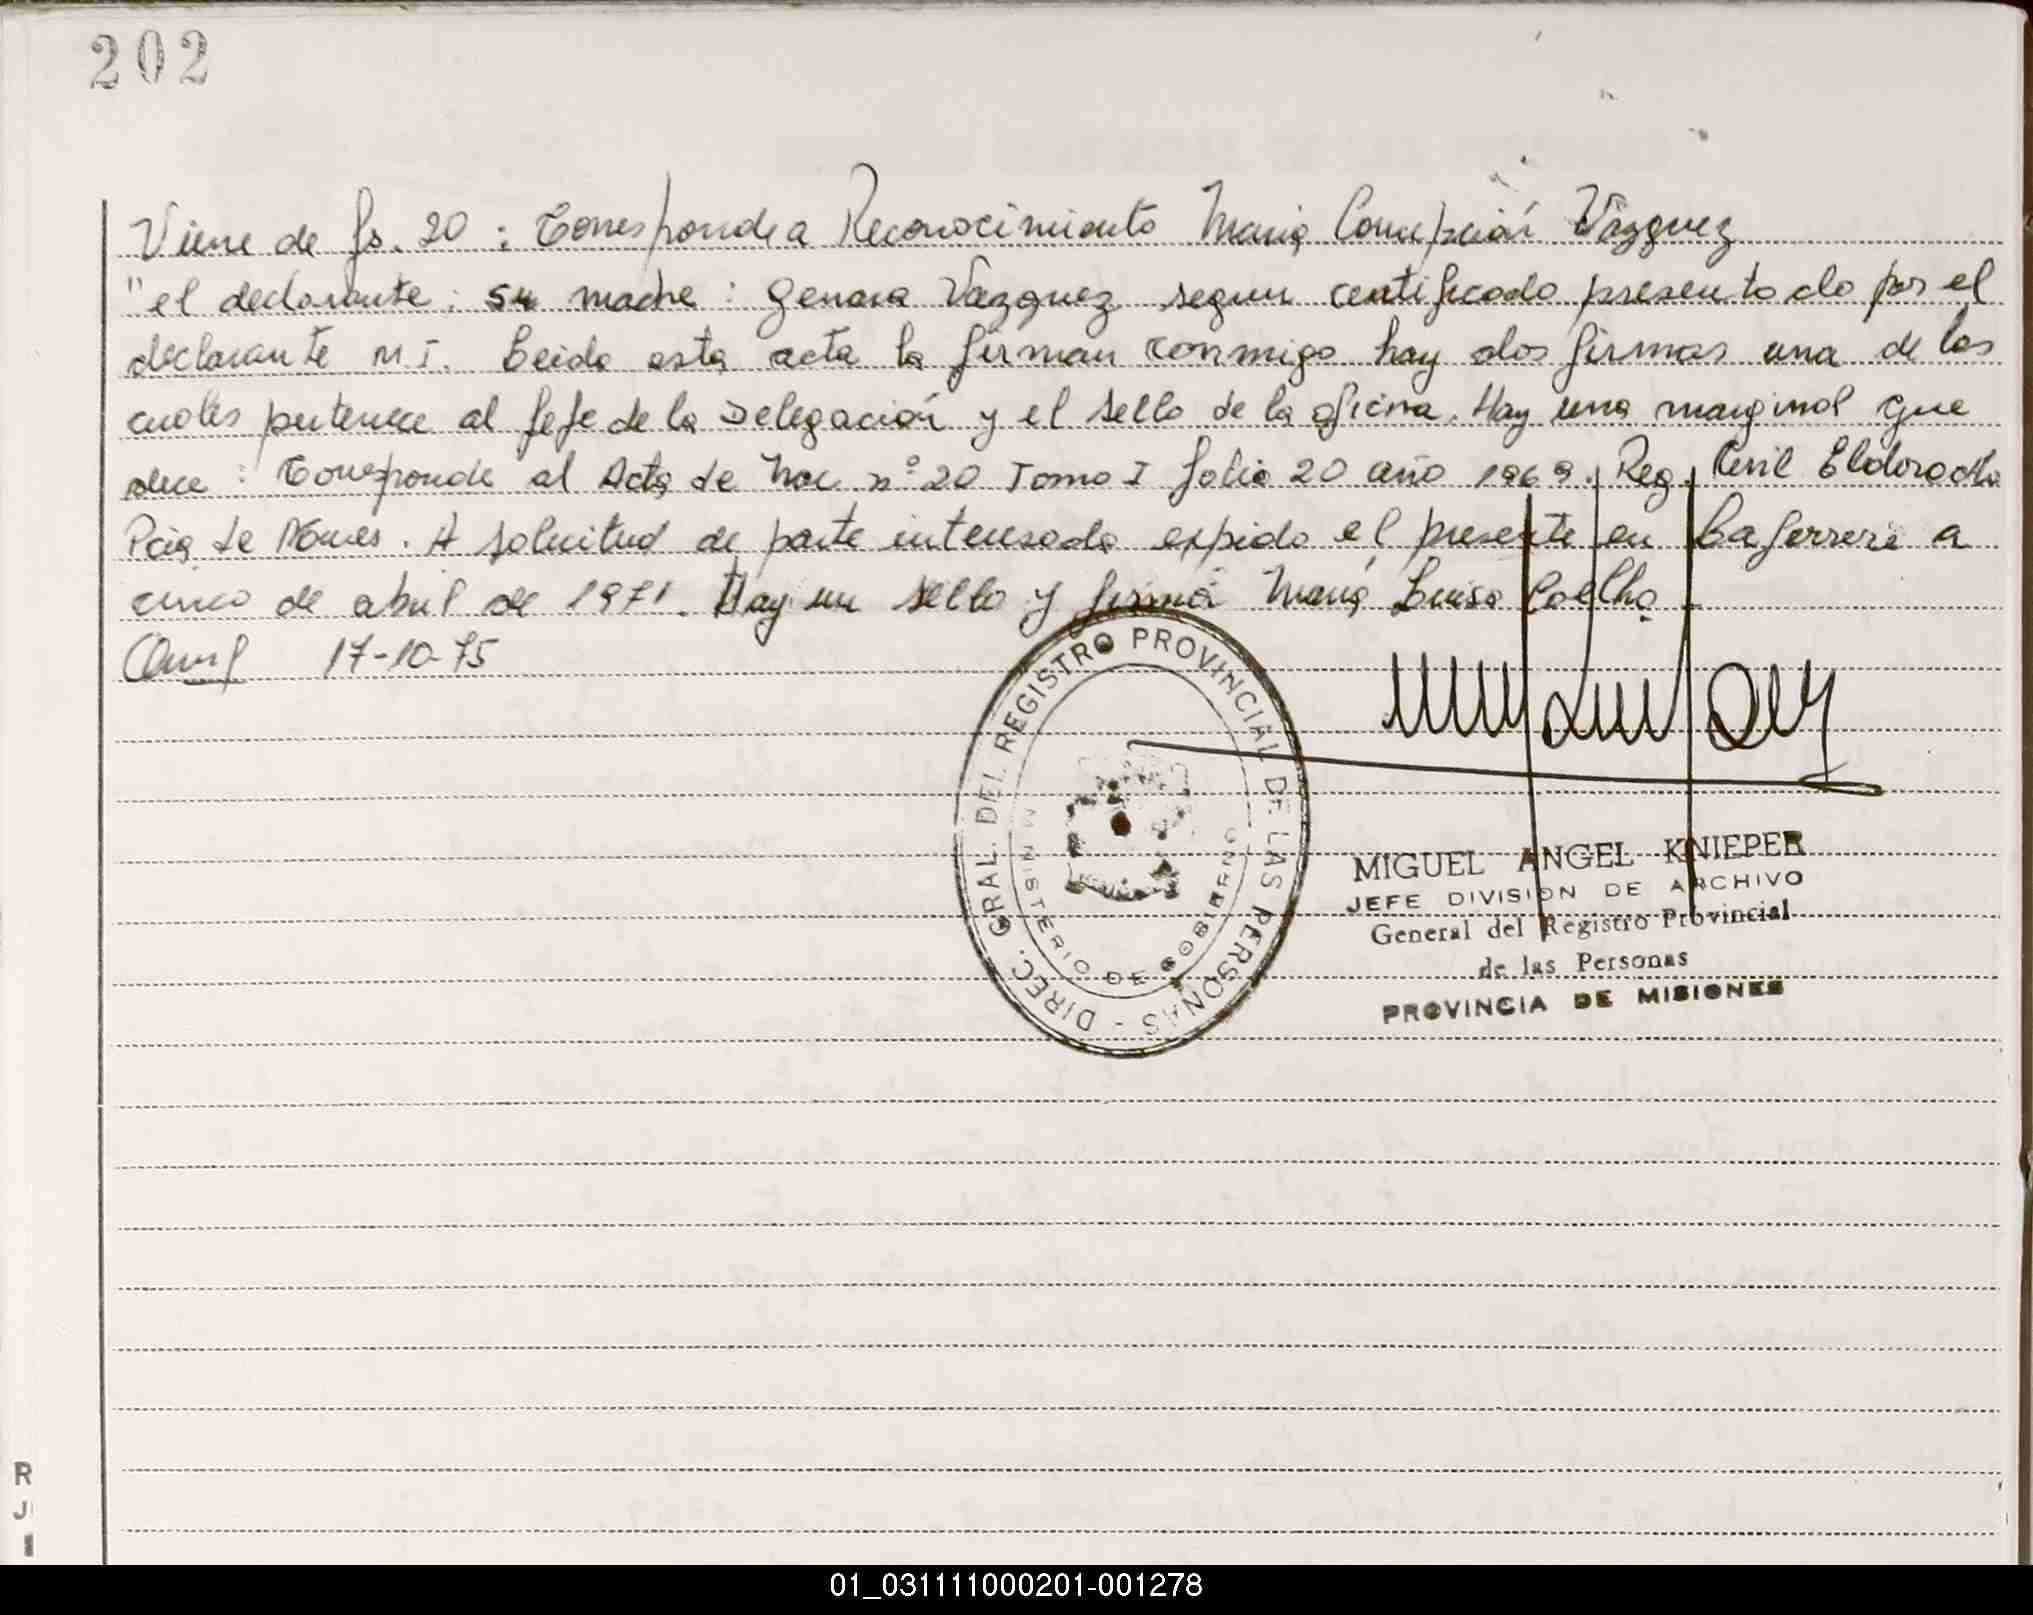 202
Viene de fs. 20 : Corresponde a Reconocimiento Maria Concepción Vázquez
"el declarante : su madre : Genara Vazquez segun certificado presentado por el
declarante M I. Leida esta acta la firman conmigo hay dos firmas una de las
cuales pertenece al Jefe de la Delegación y el sello de la oficina. Hay una marginal que
dice : Corresponde al Acta de Nac nº 20 Tomo I folio 20 año 1969. Reg. Civil Eldorado
Pcia de Mnes. A solicitud de parte interesada expido el presente en Laferrere a
cinco de abril de 1971. Hay un sello y firma Maria Luisa Coelho
17-10-75
DIREC. GRAL. DEL REGISTRO PROVINCIAL DE LAS PERSONAS -
MINISTERIO DE GOBIERNO
MIGUEL ANGEL KNIEPER
JEFE DIVISION DE ARCHIVO
General del Registro Provincial
de las Personas
PROVINCIA DE MISIONES
R
J
01_031111000201-001278